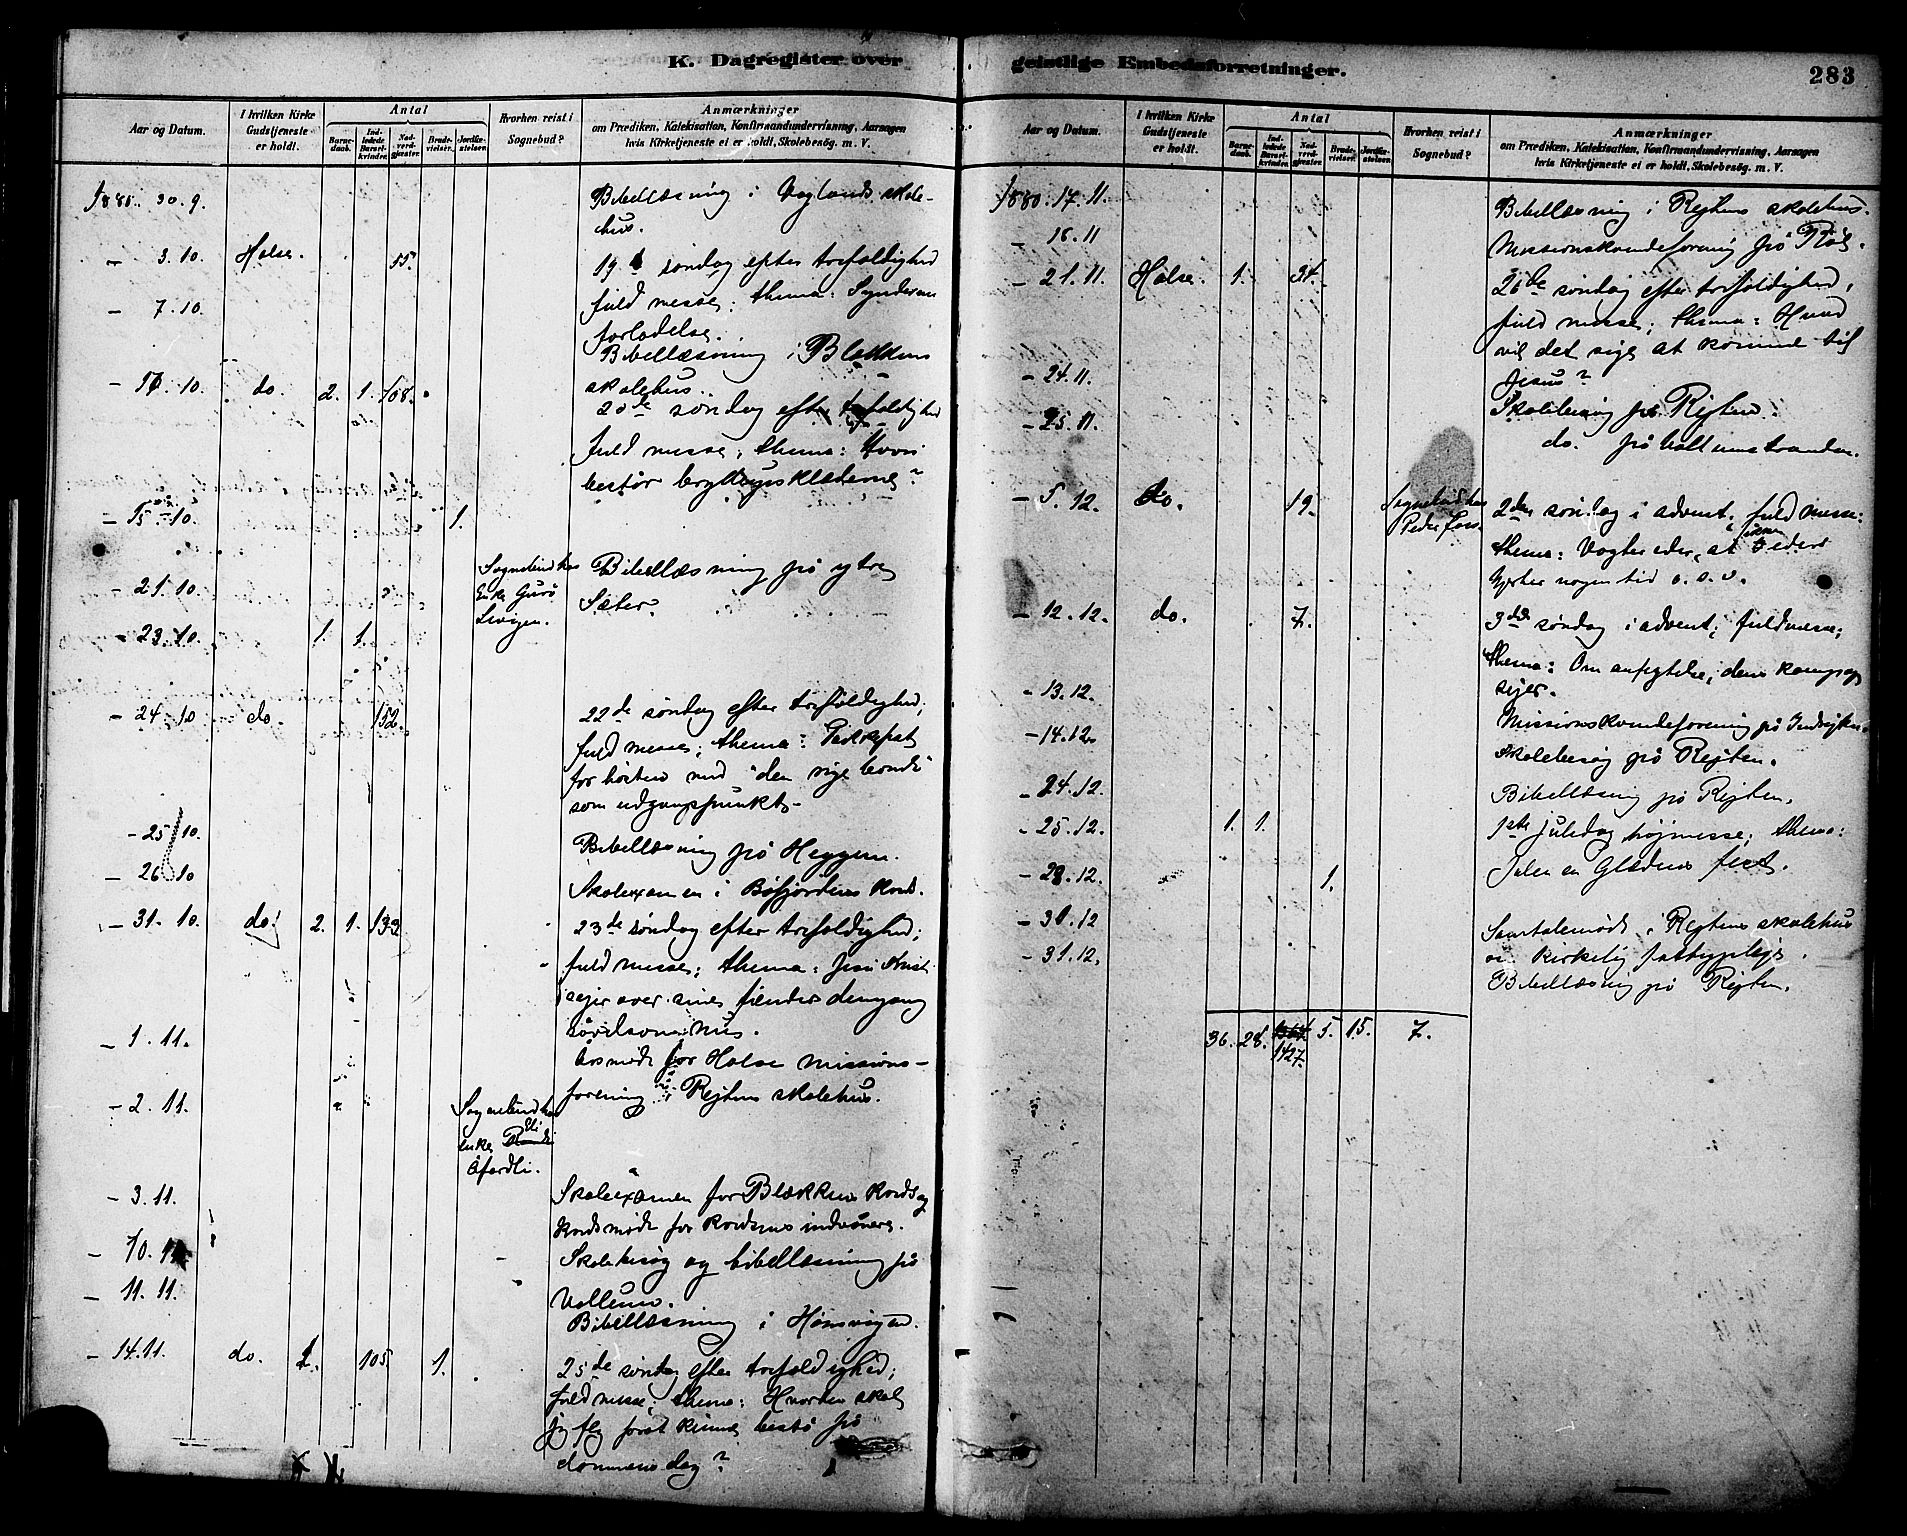 K. Dagregister over
Aar og Datum.
I hvilken Kirke Gudstjeneste er holdt.
Antal
Barne-daab.
Ind-ledede Barsel-kvinder.
Nad-verd-gjæster.
Brude-vielser.
Jordfæ-stelser.
Hvorhen reist i Sognebud?
Anmærkninger
om Prædiken, Katekisation, Konfirmandundervisning, Aarsagen
hvis Kirketjeneste ei er holdt, Skolebesøg. m. V.
1880. 30. 9. Bibellæsning i Voglands skole-
hus.
- 3. 10. Halse. 55. 19 søndag efter trefoldighed
fuld messe; thema: Syndernes
forladelse.
- 7. 10. Bibellæsning i Blekkens
skolehus.
- 10. do. 2. 1. 108. 20de søndag efter trefoldighed
fuld messe; thema: Hvori
består bryllupsklæderne?
- 15. 10. 1.
- 21. 10. Sognebud hos Enke Guro
Bibellæsning på ytre
Sæter.
- 23. 10. 1. 1.
- 24. 10 do. 152. 22de søndag efter trefoldighed;
fuld messe; thema:
for høsten med "den rige bonde"
som udgangspunkt.
- 25/10. Bibellæsning på Heggem.
- 26. 10 Skoleexamen i Bøfjordens kreds.
- 31. 10. do. 2. 1. 133 23de søndag efter trefoldighed;
fuld messe; thema: Jesu Krist
sejer over sine fiender dengang
såvelsom nu.
- 1. 11. Årsmøde for Halse missions-
forening i Rejtens skolehus.
- 2. 11. Sognebud hos
enke Eli
- 3. 11. Skoleexamen for Blekkens kreds og
kredsmøde for kredsens indvånere.
- 10. 11. Skolebesøg og bibellæsning på
Vollum.
- 11. 11. Bibellæsning i Hønsvigen.
- 14. 11. do. 1. 105. 1. 25de søndag efter trefoldighed;
fuld messe; thema: Hvorden skal
jeg kunne bestå på
dommens dag?
geistlige Embedsforretninger.
283
Aar og Datum.
I hvilken Kirke Gudstjeneste er holdt.
Antal
Barne-daab.
Ind-ledede Barsel-kvinder.
Nad-verd-gjæster.
Brude-vielser.
Jordfæ-stelser.
Hvorhen reist i Sognebud?
Anmærkninger
om Prædiken, Katekisation, Konfirmandundervisning, Aarsagen
hvis Kirketjeneste ei er holdt, Skolebesøg. m. V.
1880. 17. 11. Bibellæsning i Rejtens skolehus.
- 18. 11 Missionskvindeforening på
- 21. 11. Halse. 1. 34. 26de søndag efter trefoldighed,
fuld messe; thema: Hvad
vil det sige at komme til
Jesus?
- 24. 11. Skolebesøg på Rejten.
- 25. 11. do. på
- 5. 12. do. 19. Sognebud hos
Peder
2den søndag i advent; fuld messe;
thema: Vogter eder, at eders
hjerter nogen tid o. s. v.
- 12. 12. do. 7. 3die søndag i advent; fuldmesse;
thema: Om anfegtelse, dens kamp og
sejer.
- 13. 12. Missionskvindeforening på
- 14. 12. Skolebesøg på Rejten.
- 24. 12. Bibellæsning på Rejten.
- 25. 12. 1. 1. 1ste juledag højmesse; thema:
Julen en Glædens fest.
- 28. 12. 1.
- 30. 12 Samtalemøde i Rejtens skolehus
- 31. 12. Bibellæsning på Rejten.
36. 28. 1427. 5. 15. 7.